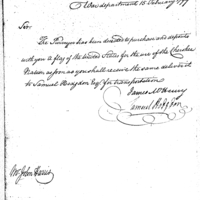 War department 15 February 1797
Sir
The Purveyor has been directed to purchase and deposite
with you a flag of the United States for the use of the Cherokee
Nation as soon as you shall receive the same deliver it
to Samuel Braydon Esqr for transportation
James McHenry
Samuel Hodgdon
Mr John Harris